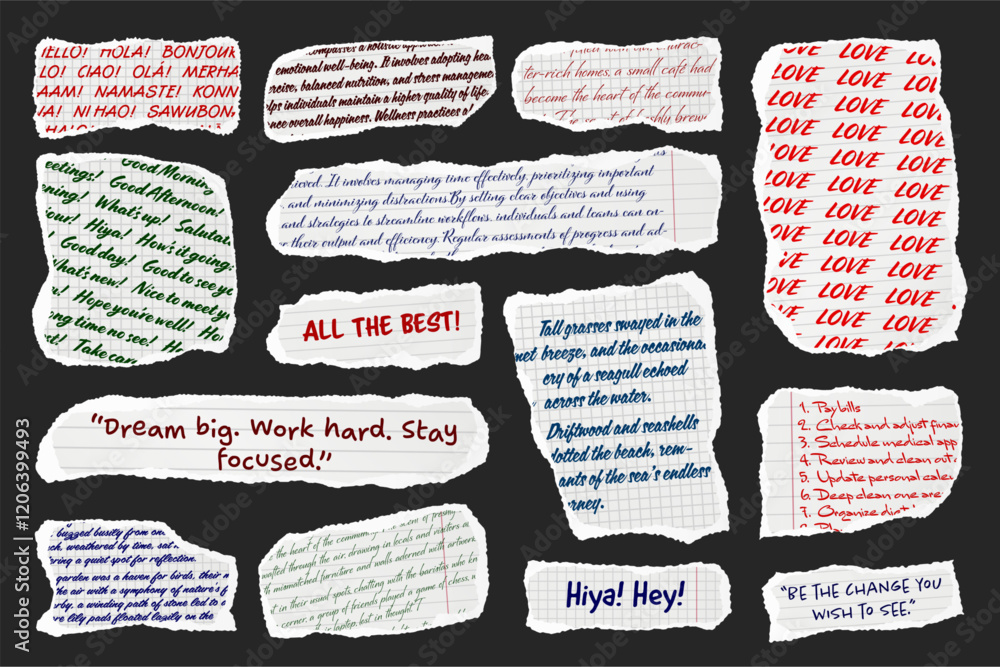 HELLO! HOLA! BONJOUR
LO! CIAO! OLÁ! MERHA
AAM! NAMASTE! KONN
A! NI HAO! SAWUBON
emotional well-being. It involves adopting hea
rcise, balanced nutrition, and stress manageme
lps individuals maintain a higher quality of life
nce overall happiness. Wellness practices a
ter-rich homes, a small café had
become the heart of the commu-
LOVE LOVE LOVE
LOVE LOVE LOVE
LOVE LOVE LOVE
LOVE LOVE LOVE
LOVE LOVE LOVE
LOVE LOVE LOVE
LOVE LOVE LOVE
LOVE LOVE LOVE
LOVE LOVE LOVE
LOVE LOVE LOVE
LOVE LOVE
Good Morning
eetings! Good Afternoon!
ening! What's up! Salutat
jour! Hiya! How's it going:
! Good day! Good to see yo
What's new! Nice to meet y
! Hope you're well! How
ong time no see! Ho
t! Take care
ieved. It involves managing time effectively, prioritizing important
and minimizing distractions By setting clear objectives and using
and strategies to streamline workflows, individuals and teams can en-
their output and efficiency. Regular assessments of progress and ad-
ALL THE BEST!
Tall grasses swayed in the
met breeze, and the occasiona
cry of a seagull echoed
across the water.
Driftwood and seashells
dotted the beach, rem-
ants of the sea's endless
urney.
"Dream big. Work hard. Stay
focused."
1. Pay bills
2. Check and adjust finan
3. Schedule medical app
4. Review and clean out
5. Update personal calen
6. Deep clean one are
7. Organize
buzzed busily from one
ch, weathered by time, sat
ering a quiet spot for reflection.
garden was a haven for birds, their
the air with a symphony of nature's
rby, a winding path of stone led to
e lily pads floated lazily on the
the heart of the commun
wafted through the air, drawing in locals and visitors
th mismatched furniture and walls adorned with artwork
t in their usual spots, chatting with the baristas who kn
corner, a group of friends played a game of chess,
laptop, lost in thought
Hiya! Hey!
"BE THE CHANGE YOU
WISH TO SEE."
Adobe Stock
1206399493